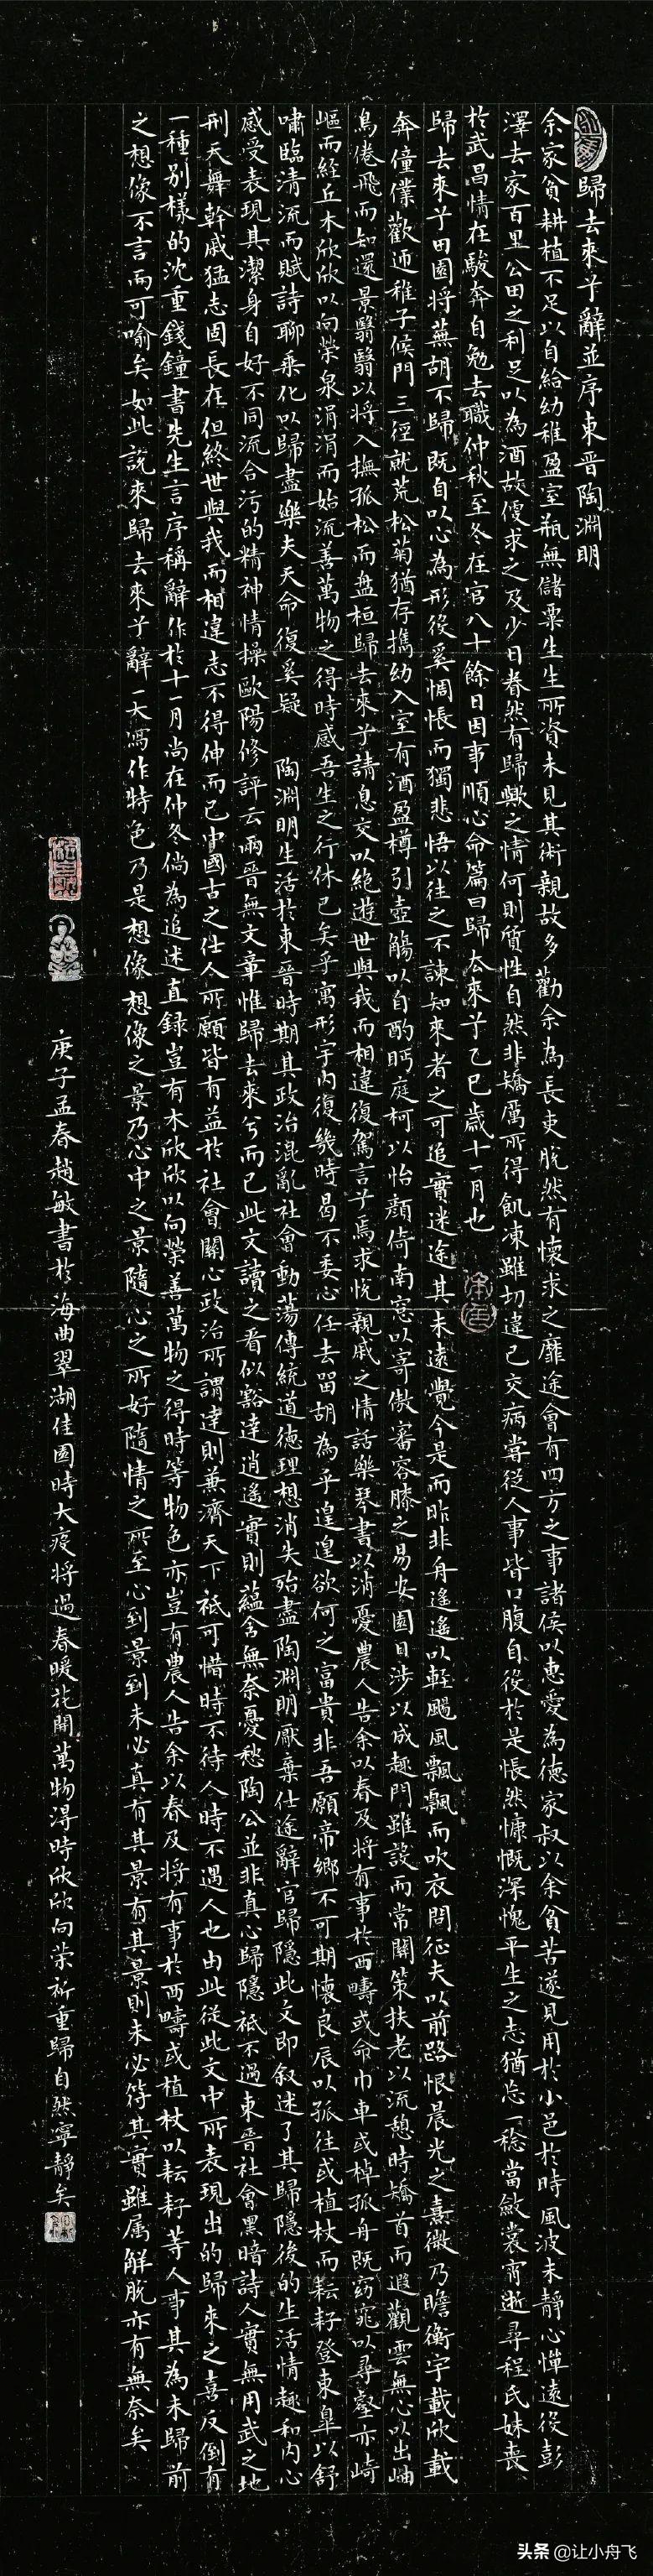 歸去來兮辭並序東晉陶淵明
余家貧耕植不足以自給幼稚盈室瓶無儲粟生生所資未見其術親故多勸余為長吏脫然有懷求之靡途會有四方之事諸侯以惠愛為德家叔以余貧苦遂見用於小邑於時風波未靜心憚遠役彭
澤去家百里公田之利足以為酒故便求之及少日眷然有歸歟之情何則質性自然非矯厲所得飢凍雖切違己交病嘗從人事皆口腹自役於是悵然慷慨深愧平生之志猶忘一稔當斂裳宵逝尋程氏妹喪
於武昌情在駿奔自勉去職仲秋至冬在官八十餘日因事順心命篇曰歸去來兮乙巳歲十一月也
歸去來兮田園將蕪胡不歸既自以心為形役奚惆悵而獨悲悟以往之不諫知來者之可追實迷途其未遠覺今是而昨非舟遙遙以輕颺風飄飄而吹衣問征夫以前路恨晨光之熹微乃瞻衡宇載欣載
奔僮僕歡迎稚子候門三徑就荒松菊猶存攜幼入室有酒盈樽引壺觴以自酌眄庭柯以怡顏倚南窗以寄傲審容膝之易安園日涉以成趣門雖設而常關策扶老以流憩時矯首而遐觀雲無心以出岫
鳥倦飛而知還景翳翳以將入撫孤松而盤桓歸去來兮請息交以絕遊世與我而相違復駕言兮焉求悅親戚之情話樂琴書以消憂農人告余以春及將有事於西疇或命巾車或棹孤舟既窈窕以尋壑亦崎
嶇而經丘木欣欣以向榮泉涓涓而始流善萬物之得時感吾生之行休已矣乎寓形宇內復幾時曷不委心任去留胡為乎遑遑欲何之富貴非吾願帝鄉不可期懷良辰以孤往或植杖而耘耔登東皋以舒
嘯臨清流而賦詩聊乘化以歸盡樂夫天命復奚疑 陶淵明生活於東晉時期其政治混亂社會動蕩傳統道德理想消失殆盡陶淵明厭棄仕途辭官歸隱此文即敘述了其歸隱後的生活情趣和內心
感受表現其潔身自好不同流合污的精神情操歐陽修評云兩晉無文章惟歸去來兮而已此文讀之看似豁達逍遙實則蘊含無奈憂愁陶公並非真心歸隱祇不過東晉社會黑暗詩人實無用武之地
刑天舞幹戚猛志固長在但終世與我而相違志不得伸而已中國古之仕人所願皆有益於社會關心政治所謂達則兼濟天下祇可惜時不待人時不遇人也由此從此文中所表現出的歸來之喜反倒有
一種別樣的沈重錢鐘書先生言序稱辭作於十一月尚在仲冬倘為追述直錄豈有木欣欣以向榮善萬物之得時等物色亦豈有農人告余以春及將有事於西疇或植杖以耘耔等人事其為未歸前
之想像不言而可喻矣如此說來歸去來兮辭一大寫作特色乃是想像想像之景乃心中之景隨心之所好隨情之所至心到景到未必真有其景有其景則未必符其實雖屬解脫亦有無奈矣
庚子孟春趙敏書於海曲翠湖佳園時大疫將過春暖花開萬物得時欣欣向榮祈重歸自然寧靜矣
头条 @让小舟飞